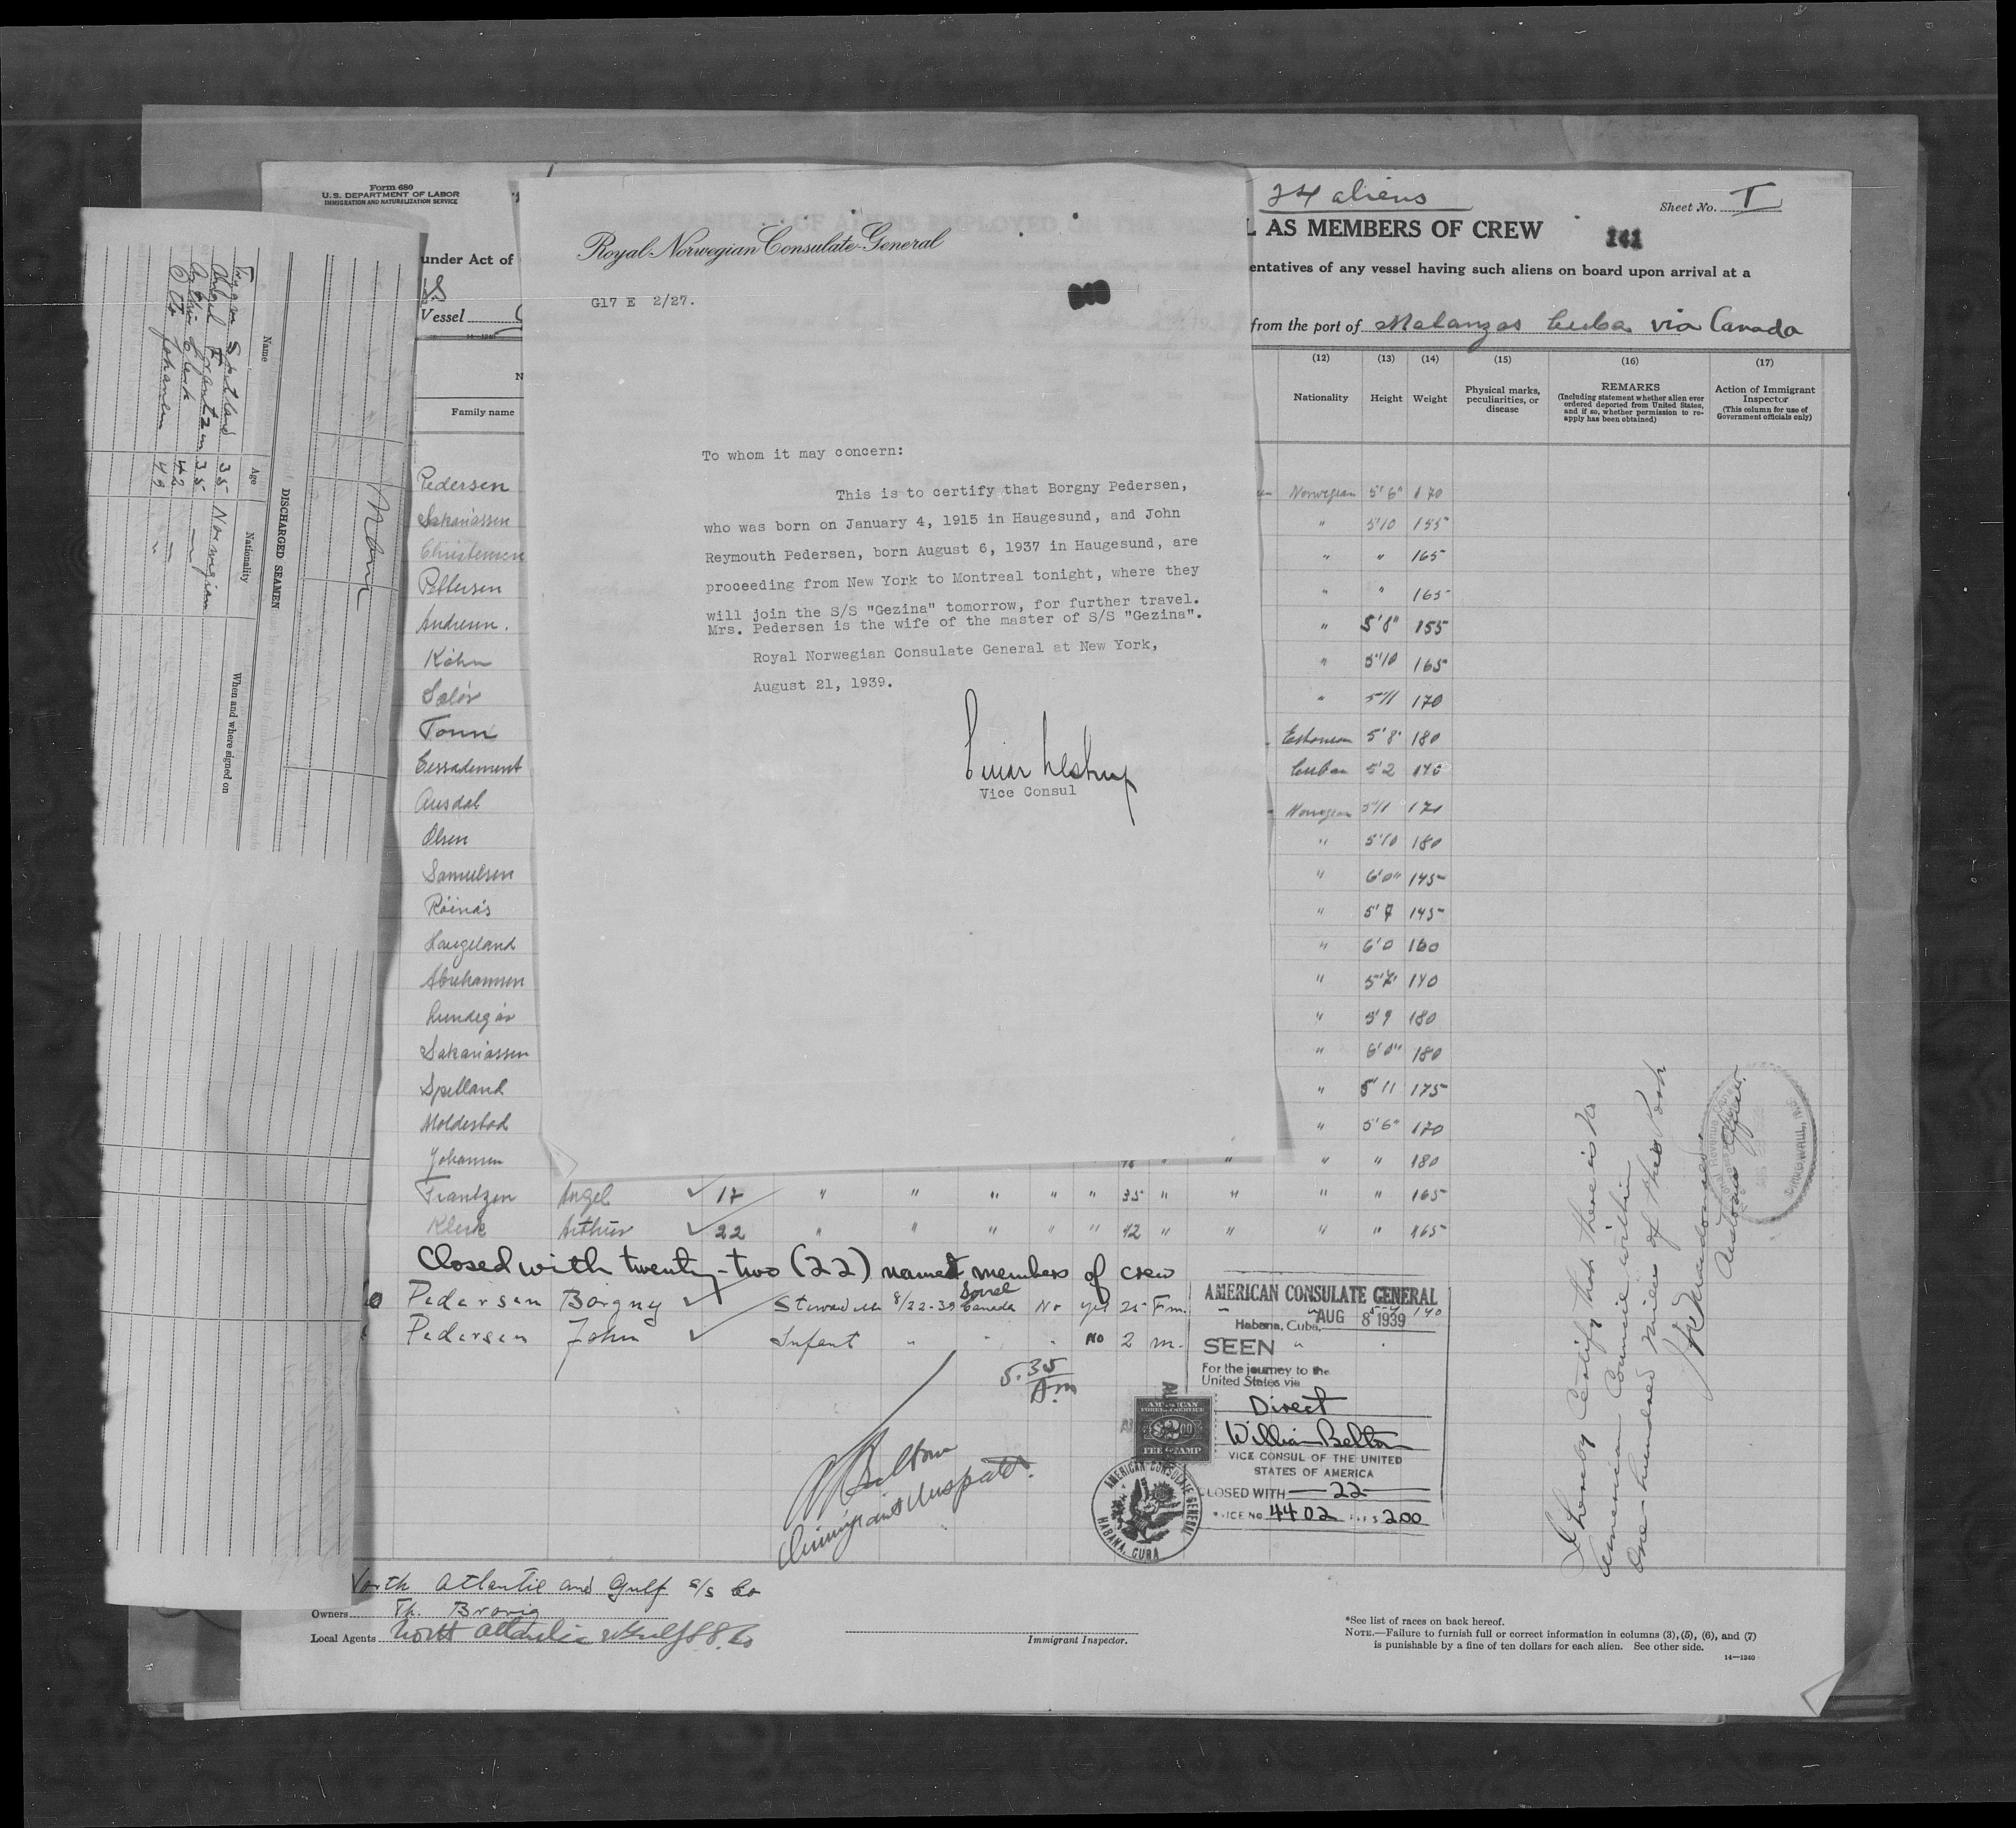 Form 680
U.S. DEPARTMENT OF LABOR
IMMIGRATION AND NATURALIZATION SERVICE
24 aliens
Sheet No. I
L AS MEMBERS OF CREW
141
under Act of
entatives of any vessel having such aliens on board upon arrival at a
Vessel
from the port of Matanzas Cuba via Canada
14-1240
Family name
(12) (13) (14) (15) (16) (17)
Nationality Height Weight
Physical marks, peculiarities, or disease
REMARKS
(Including statement whether alien ever ordered deported from United States, and if so, whether permission to reapply has been obtained)
Action of Immigrant Inspector
(This column for use of Government officials only)
Royal Norwegian Consulate General
G17 E 2/27.
To whom it may concern:
This is to certify that Borgny Pedersen,
who was born on January 4, 1915 in Haugesund, and John
Reymouth Pedersen, born August 6, 1937 in Haugesund, are
proceeding from New York to Montreal tonight, where they
will join the S/S "Gezina" tomorrow, for further travel.
Mrs. Pedersen is the wife of the master of S/S "Gezina".
Royal Norwegian Consulate General at New York,
August 21, 1939.
Vice Consul
Pedersen Norwegian 5'6" 170
Sakariassen " 5'10 155
Christensen " " 165
Pettersen " " 165
Andresen. " 5'8" 155
Köhn " 5'10 165
" 5'11 170
Tonn Estonian 5'8" 180
Cuban 5'2
Ausdal Norwegian 5'11
Olsen " 5'10 180
Samuelsen " 6'0" 145
" 145
Haugeland " 6'0 160
Abrahamsen " 5'7" 140
" 5'9 180
Sakariassen " 6'0" 180
Spetland " 5'11 175
Moldestad " 5'6" 170
Johansen " " " " 180
Frantzen Angel 17 " " " " " 35 " " " " 165
Klerk Arthur 22 " " " " " 42 " " " " 165
Closed with twenty-two (22) named members of crew
Pedersen Borgny 8/22-39 Sorel Canada No yes 25 Fm. " " 140
Pedersen John Infant " " " No 2 m. " "
5.35
Am
Belton
Immigrant Inspector.
AMERICAN CONSULATE GENERAL
Habana, Cuba, AUG 8 1939
SEEN
For the journey to the
United States via
Direct
William Belton
VICE CONSUL OF THE UNITED
STATES OF AMERICA
LOSED WITH 22
ICE No. 4402 $ 200
AMERICAN
FOREIGN SERVICE
$2.00
FEE STAMP
AMERICAN CONSULATE GENERAL
HABANA, CUBA
I hereby Certify that there is no
American Council within
One hundred miles of this Port
Customs Officer.
North Atlantic and Gulf s/s Co
Owners Th. Brovig
Local Agents North Atlantic & Gulf SS. Co
Immigrant Inspector.
*See list of races on back hereof.
NOTE.—Failure to furnish full or correct information in columns (3), (5), (6), and (7)
is punishable by a fine of ten dollars for each alien. See other side.
14—1240
None
DISCHARGED SEAMEN
Name Age Nationality When and where signed on
Spetland 35 Norwegian
Angel Frantzen 35 "
Arthur Clark 42 "
Johansen 49 "